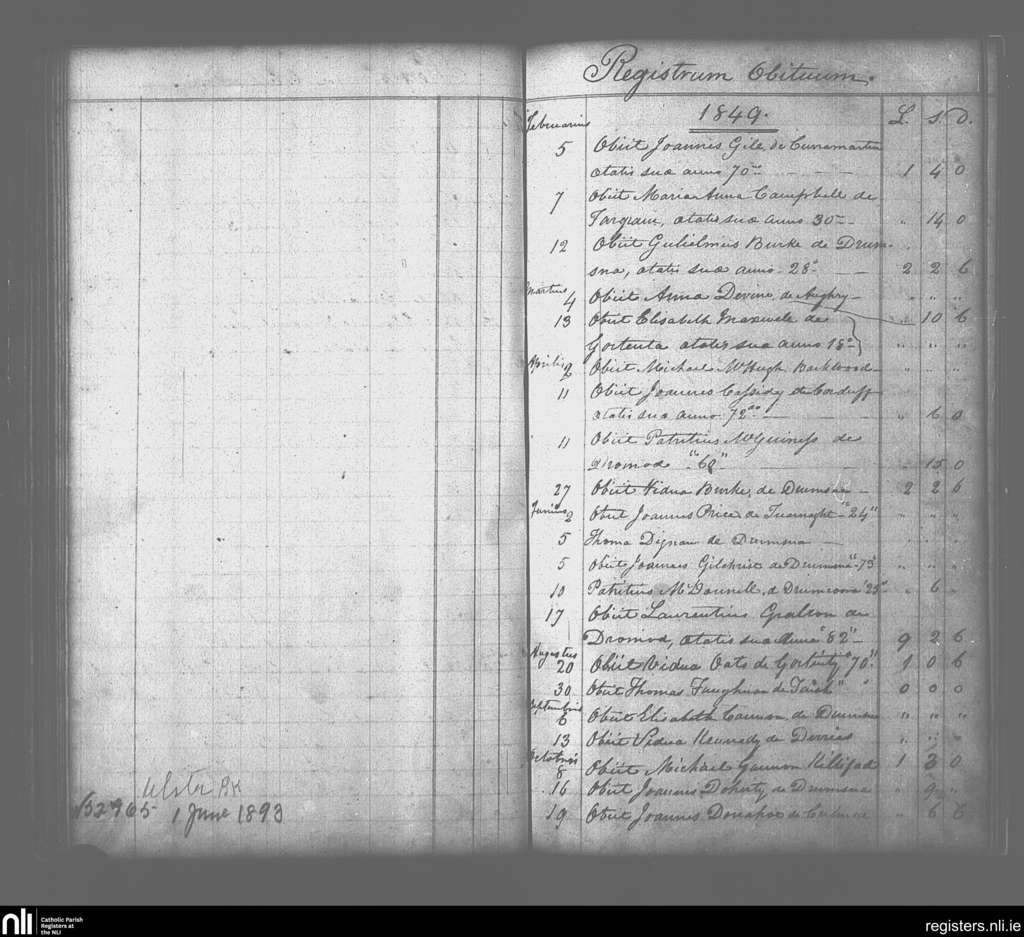 Registrum Obituum.
1849. L. S. D.
Februarius
5 Obiit Joannis Gill de
ætatis suæ anno 70 1 4 0
7 Obiit Maria Anna Campbell de
ætatis suæ anno 30 " 14 0
12 Obiit Gulielmus Burke de Drum-
sna, ætatis suæ anno 28 2 2 6
Martius 4 Obiit Anna Devine, de Aughry " " "
13 Obiit Elisabeth Maxwell de " 10 6
Gortenta ætatis suæ anno 18 " " "
Aprilis 2 Obiit Michael McHugh " " "
11 Obiit Joannes Cassidy de Corduff
ætatis suæ anno 72 " 6 0
11 Obiit Patritius McGuiness de
Dromod 15 0
27 Obiit Vidua Burke, de Drumsna 2 2 6
Junius 2 Obiit Joannes Price de "24" " " "
5 Thoma Dignan de Drumsna
5 Obiit Joannes Gilchrist de Drumsna "75" " " "
10 Patritius McDonnell, de "25" " 6 "
17 Obiit Laurentius de
Dromod, ætatis suæ Anno "82" 9 2 6
Augustus
20 Obiit Vidua Oats de Gortenty "70" 1 0 6
30 Obiit Thomas de 0 0 0
Septembris
6 Obiit Elisabeth Cannon, de Drumsna " " "
13 Obiit Vidua Kennedy de Derries " " "
Octobris
8 Obiit Michael Gannon Killifad 1 3 0
16 Obiit Joannes Doherty, de Drumsna " 9 "
19 Obiit Joannes Donahoe de " 6 6
Ulster
152965 1 June 1893
nli
Catholic Parish
Registers at
the NLI
registers.nli.ie